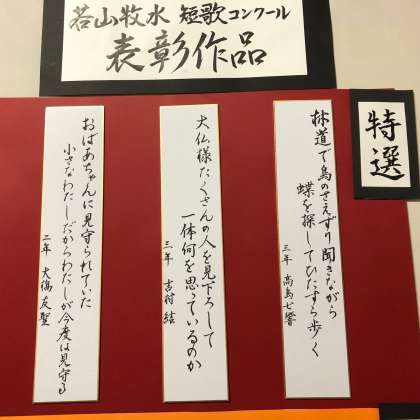 若山牧水 短歌コンクール
表彰作品
特選
林道で鳥のさえずり聞きながら
蝶を探してひたすら歩く
三年 高島七響
大仏様たくさんの人を見下ろして
一体何を思っているのか
三年 吉村 結
おばあちゃんに見守られていた
小さなわたしだからわたしが今度は見守る
三年 大脇友聖